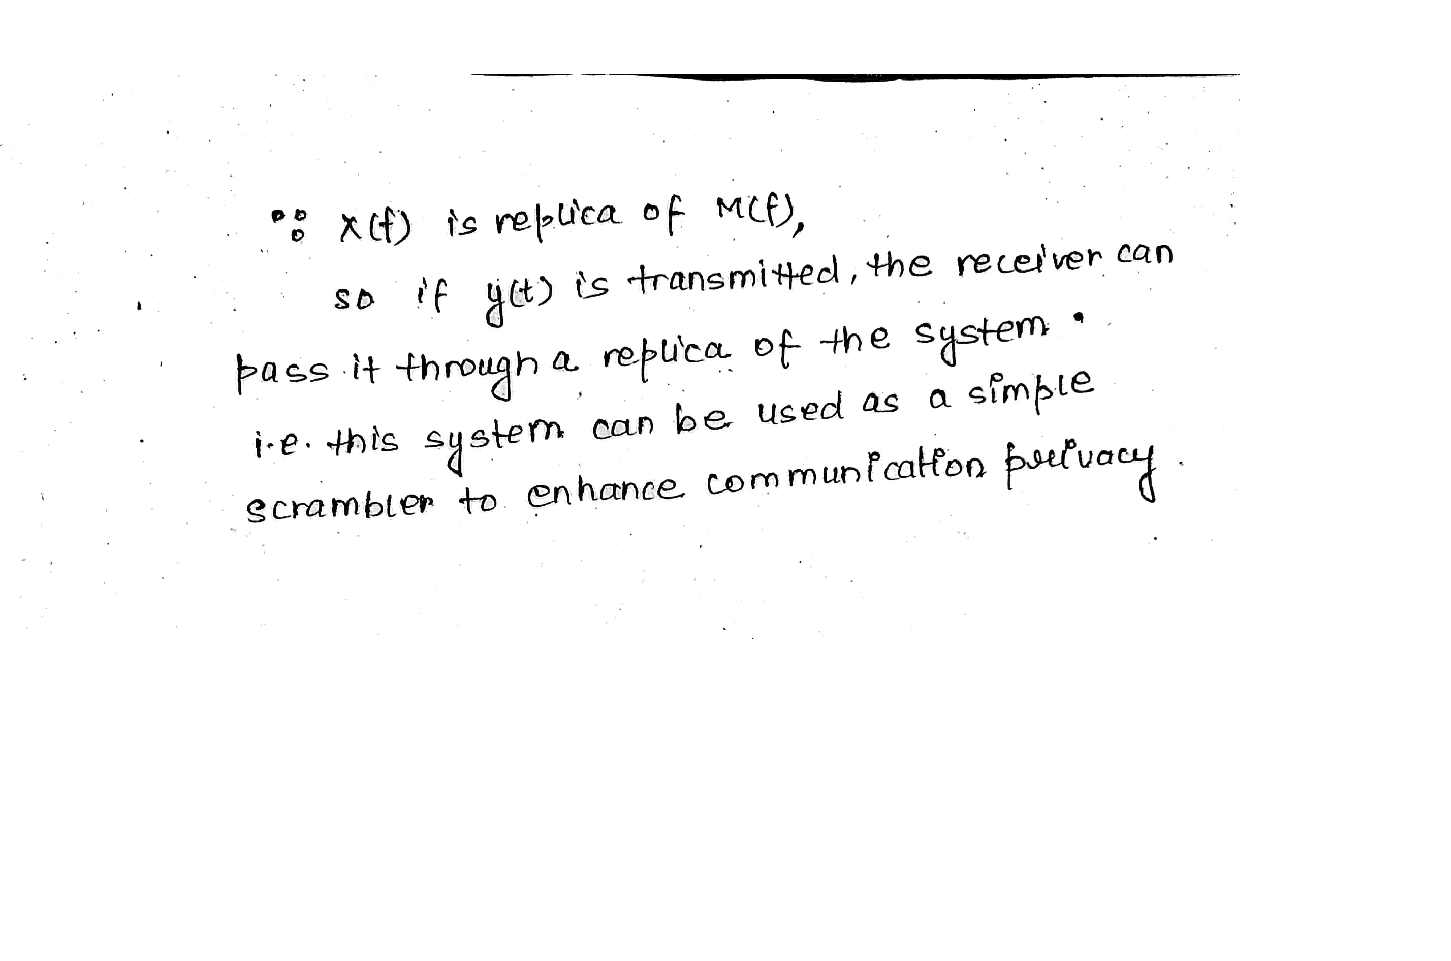 ∵ X(f) is replica of M(f),
so if y(t) is transmitted, the receiver can
pass it through a replica of the system.
i.e. this system can be used as a simple
scrambler to enhance communication privacy.